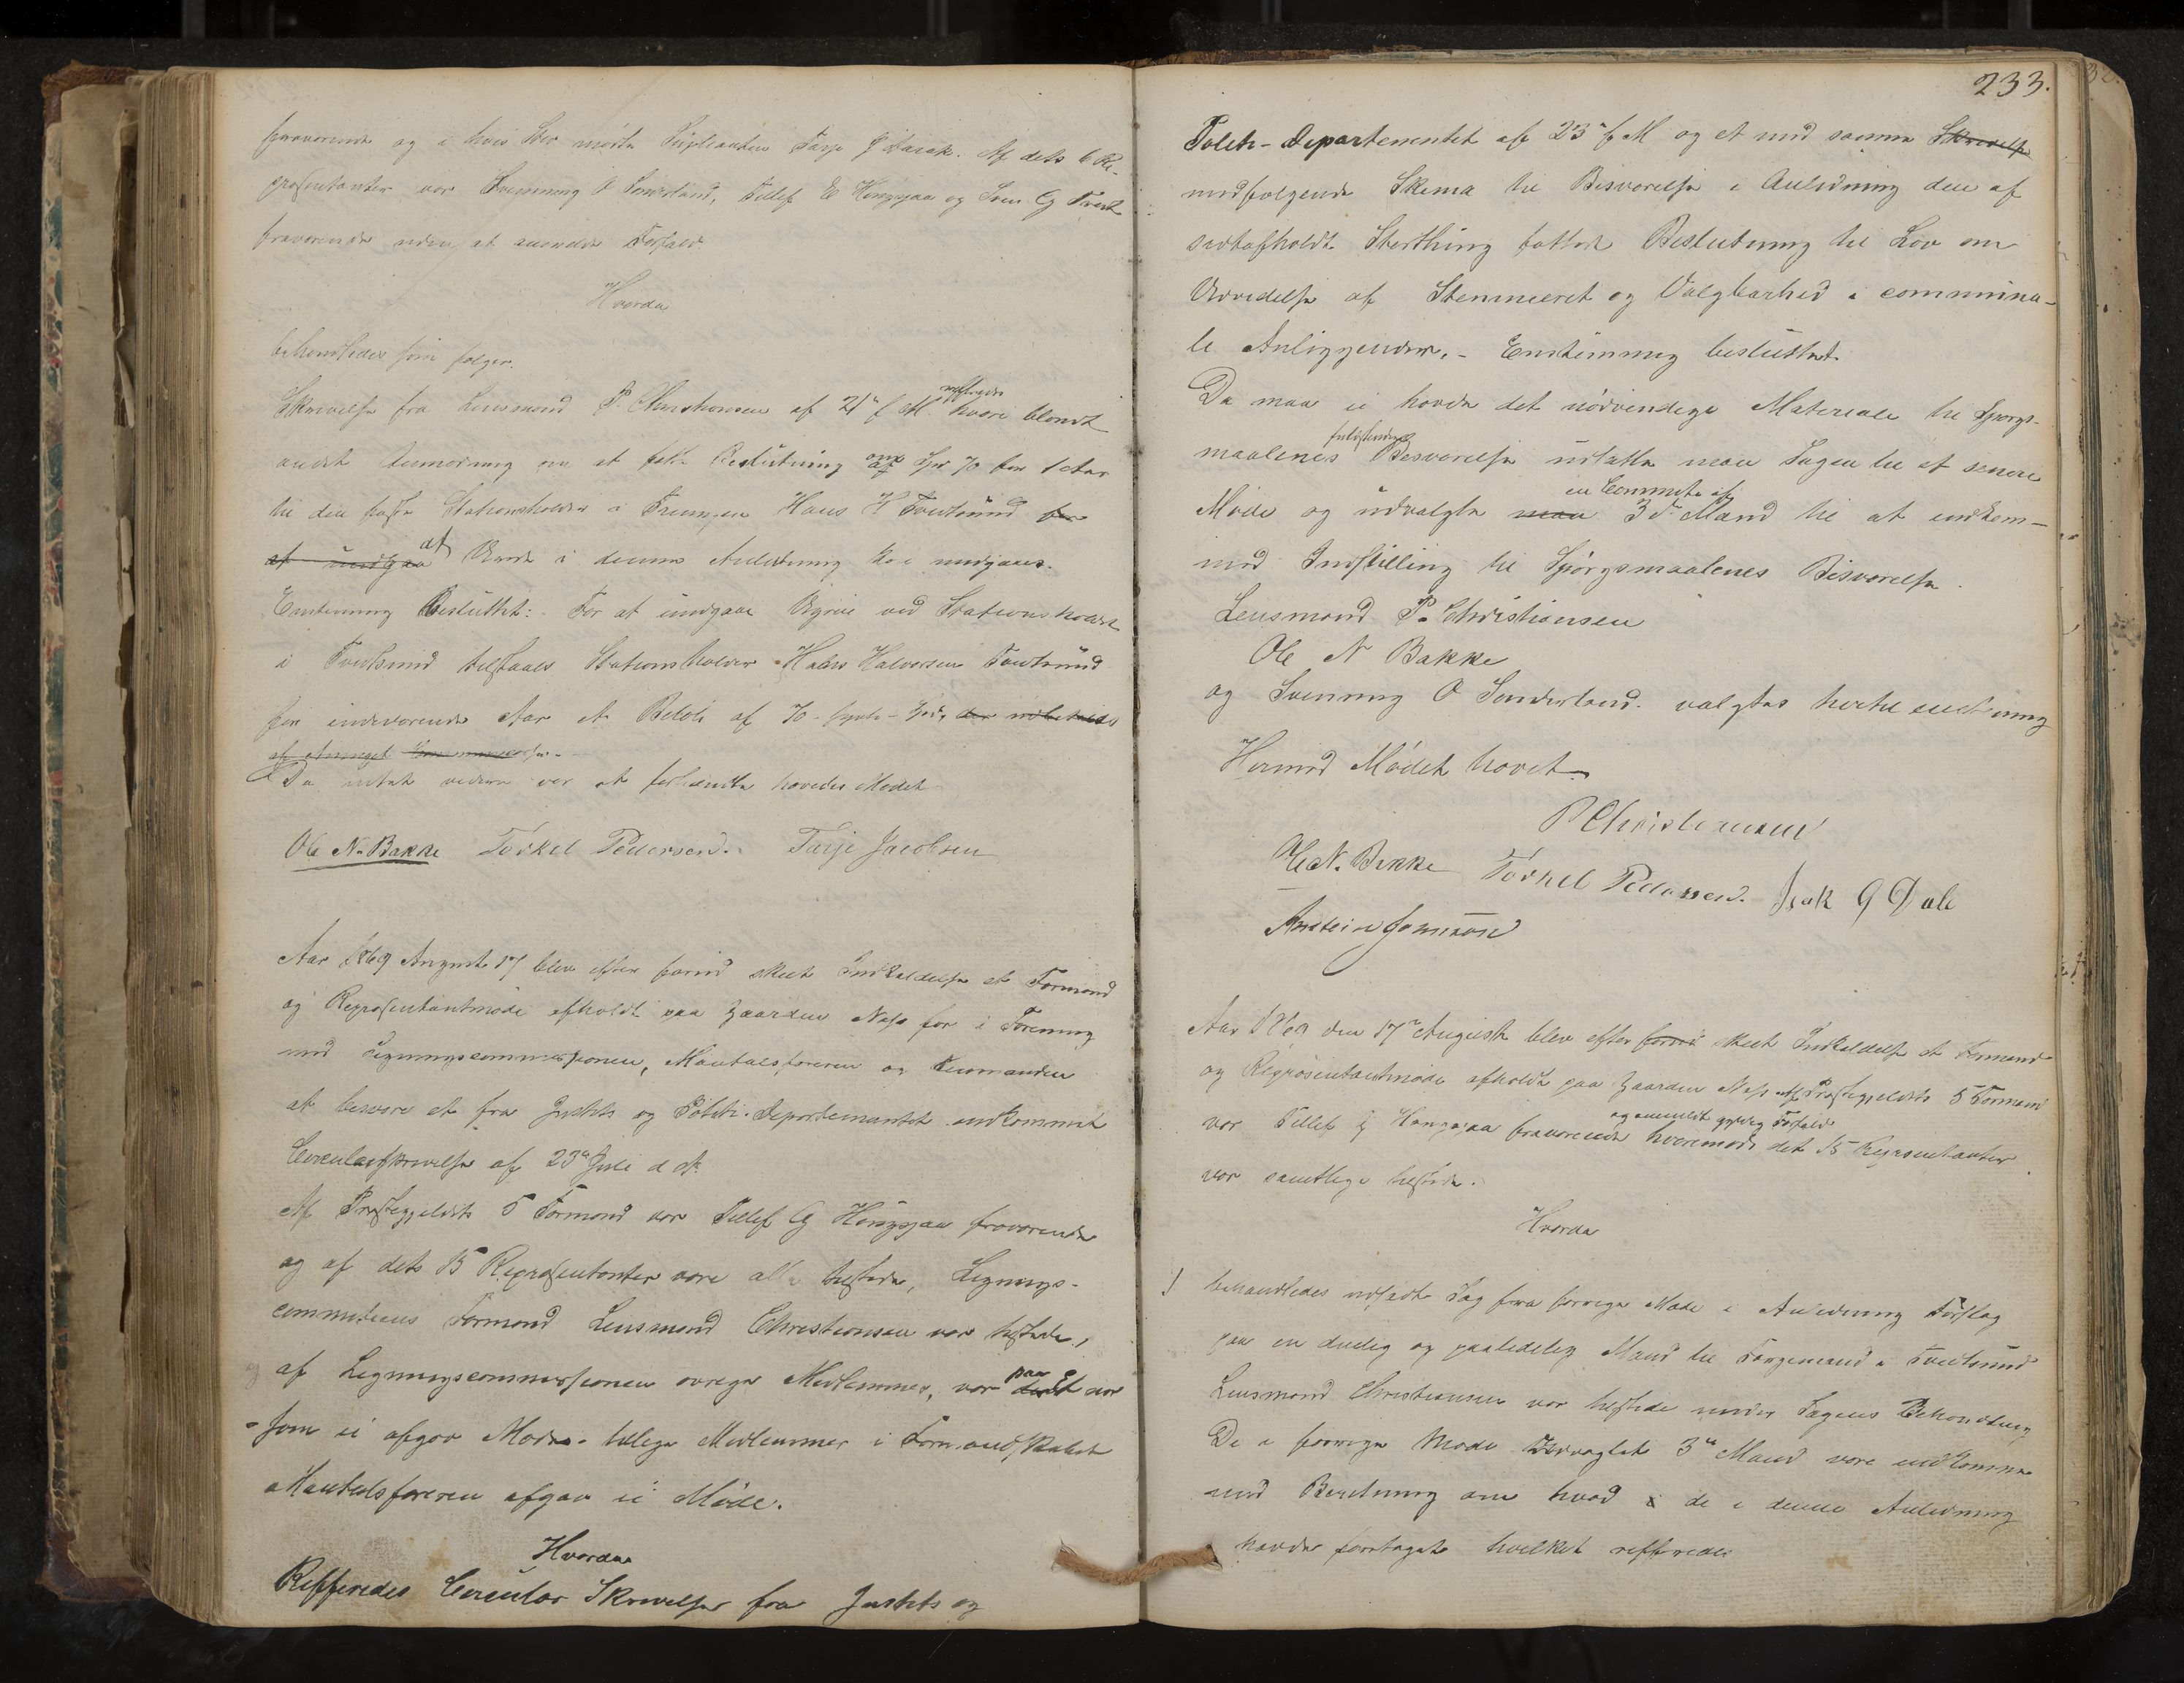 fraværende og i hvis Sted mødte Suppleanten Tarje J Aasak. Af dets 6 Re-
præsentanter var Svenning O Sønderland, Tellef E Hengsjaa og Sven G Tveit
fraværende uden at anmelde Forfald
Hvorda
behandledes som følger.
Skrivelse fra Lensmand P. Christiansen af 21de f M. hvori blandt
andet Anmodning om at fatte Beslutning om Spd 70 for 1 Aar
til den faste Stationsholder i Treungen Hans H Tveitsund for
at undgaa at Urede i denne Anledning kan undgaaes.
Enstemmig Besluttet: For at undgaae Ugreie ved Stationsholdet
i Tveitsund tilstaaes Stationsholder Hans Halvorsen Tveitsund
for indeværende Aar et Beløb af 70 - sytti - Spd, der udbetales
af
Da intet videre var at forhandle hævedes Mødet
Ole N. Bakke Torkel Pedersen. Tarje Jacobsen
Aar 1869 August 17 blev efter forud skeet Indkaldelse et Formand
og Repræsentantmøde afholdt paa Gaarden Næs for i Forening
med Ligningscommissionen, Mantalsføreren og Lensmanden
at besvare et fra Justits og Politi-Departementet indkommet
Circulærskrivelse af 23de Juli d A.
Af Præstegjeldets 5 Formænd var Tellef G Hengsjaa fraværende
og af dets 15 Repræsentanter vare alle tilstede, Lignings-
commiteens Formand Lensmand Christiansen var tilstede,
af Ligningscommissionens øvrige Medlemmer, var paa Et nær
som ei afgav Møde - tillige Medlemmer i Formandskabet
Mantalsføreren afgav ei Møde.
Hvorda
Refferedes Circulær Skrivelse fra Justits og
233.
Politi-Departementet af 23de f M og et med samme Skrivelse
medfølgende Skema til Besvarelse i Anledning den af
sidstafholdt Storthing fattede Beslutning til Lov om
Udvidelse af Stemmeret og Valgbarhed i communa-
le Anliggender. - Enstemmig besluttet.
Da man ei havde det nødvendige Materiale til Spørgs-
maalenes fuldstændige Besvarelse udsatte man Sagen til et senere
Møde og udvalgte man en Committe af 3de Mand til at indkom-
med Indstilling til Spørgsmaalenes Besvarelse.
Lensmand P. Christiansen
Ole N Bakke
og Svenning O Sønderland. valgtes hertil enstemmig
Hermed Mødet hævet.
P Christiansen
Ole N. Bakke Torkel Pedersen. Isak G Dale
Aar 1869 den 17de August blev efter forud skeet Indkaldelse et Formand
og Repræsentantmøde afholdt paa Gaarden Næs af Præstegjeldets 5 Formænd
var Tellef G Hengsjaa fraværende og anmeldt gyldig Forfald hvorimod det 15 Repræsentanter
var samtlige tilstede.
Hvorda
1 behandledes udsadt Sag fra forrige Møde i Anledning Forslag
paa en duelig og paalidelig Mand til Færgemand i Tveitsund
Lensmand Christiansen var tilstede under Sagens Behandling
De i forrige Møde Udvalgte 3de Mænd vare indkomne
med Beretning om hvad de i denne Anledning
havde foretaget hvilket refferedes